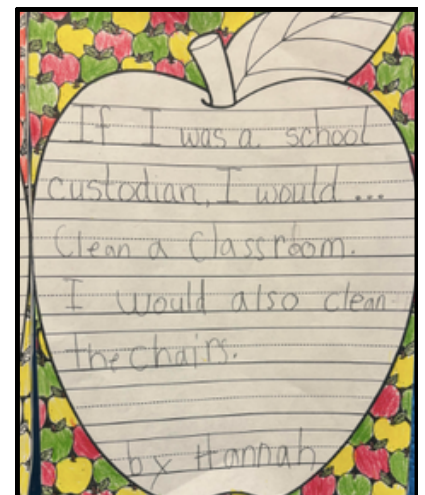 If I was a school
custodian, I would...
Clean a Classroom.
I would also clean
the chairs.
by Hannah